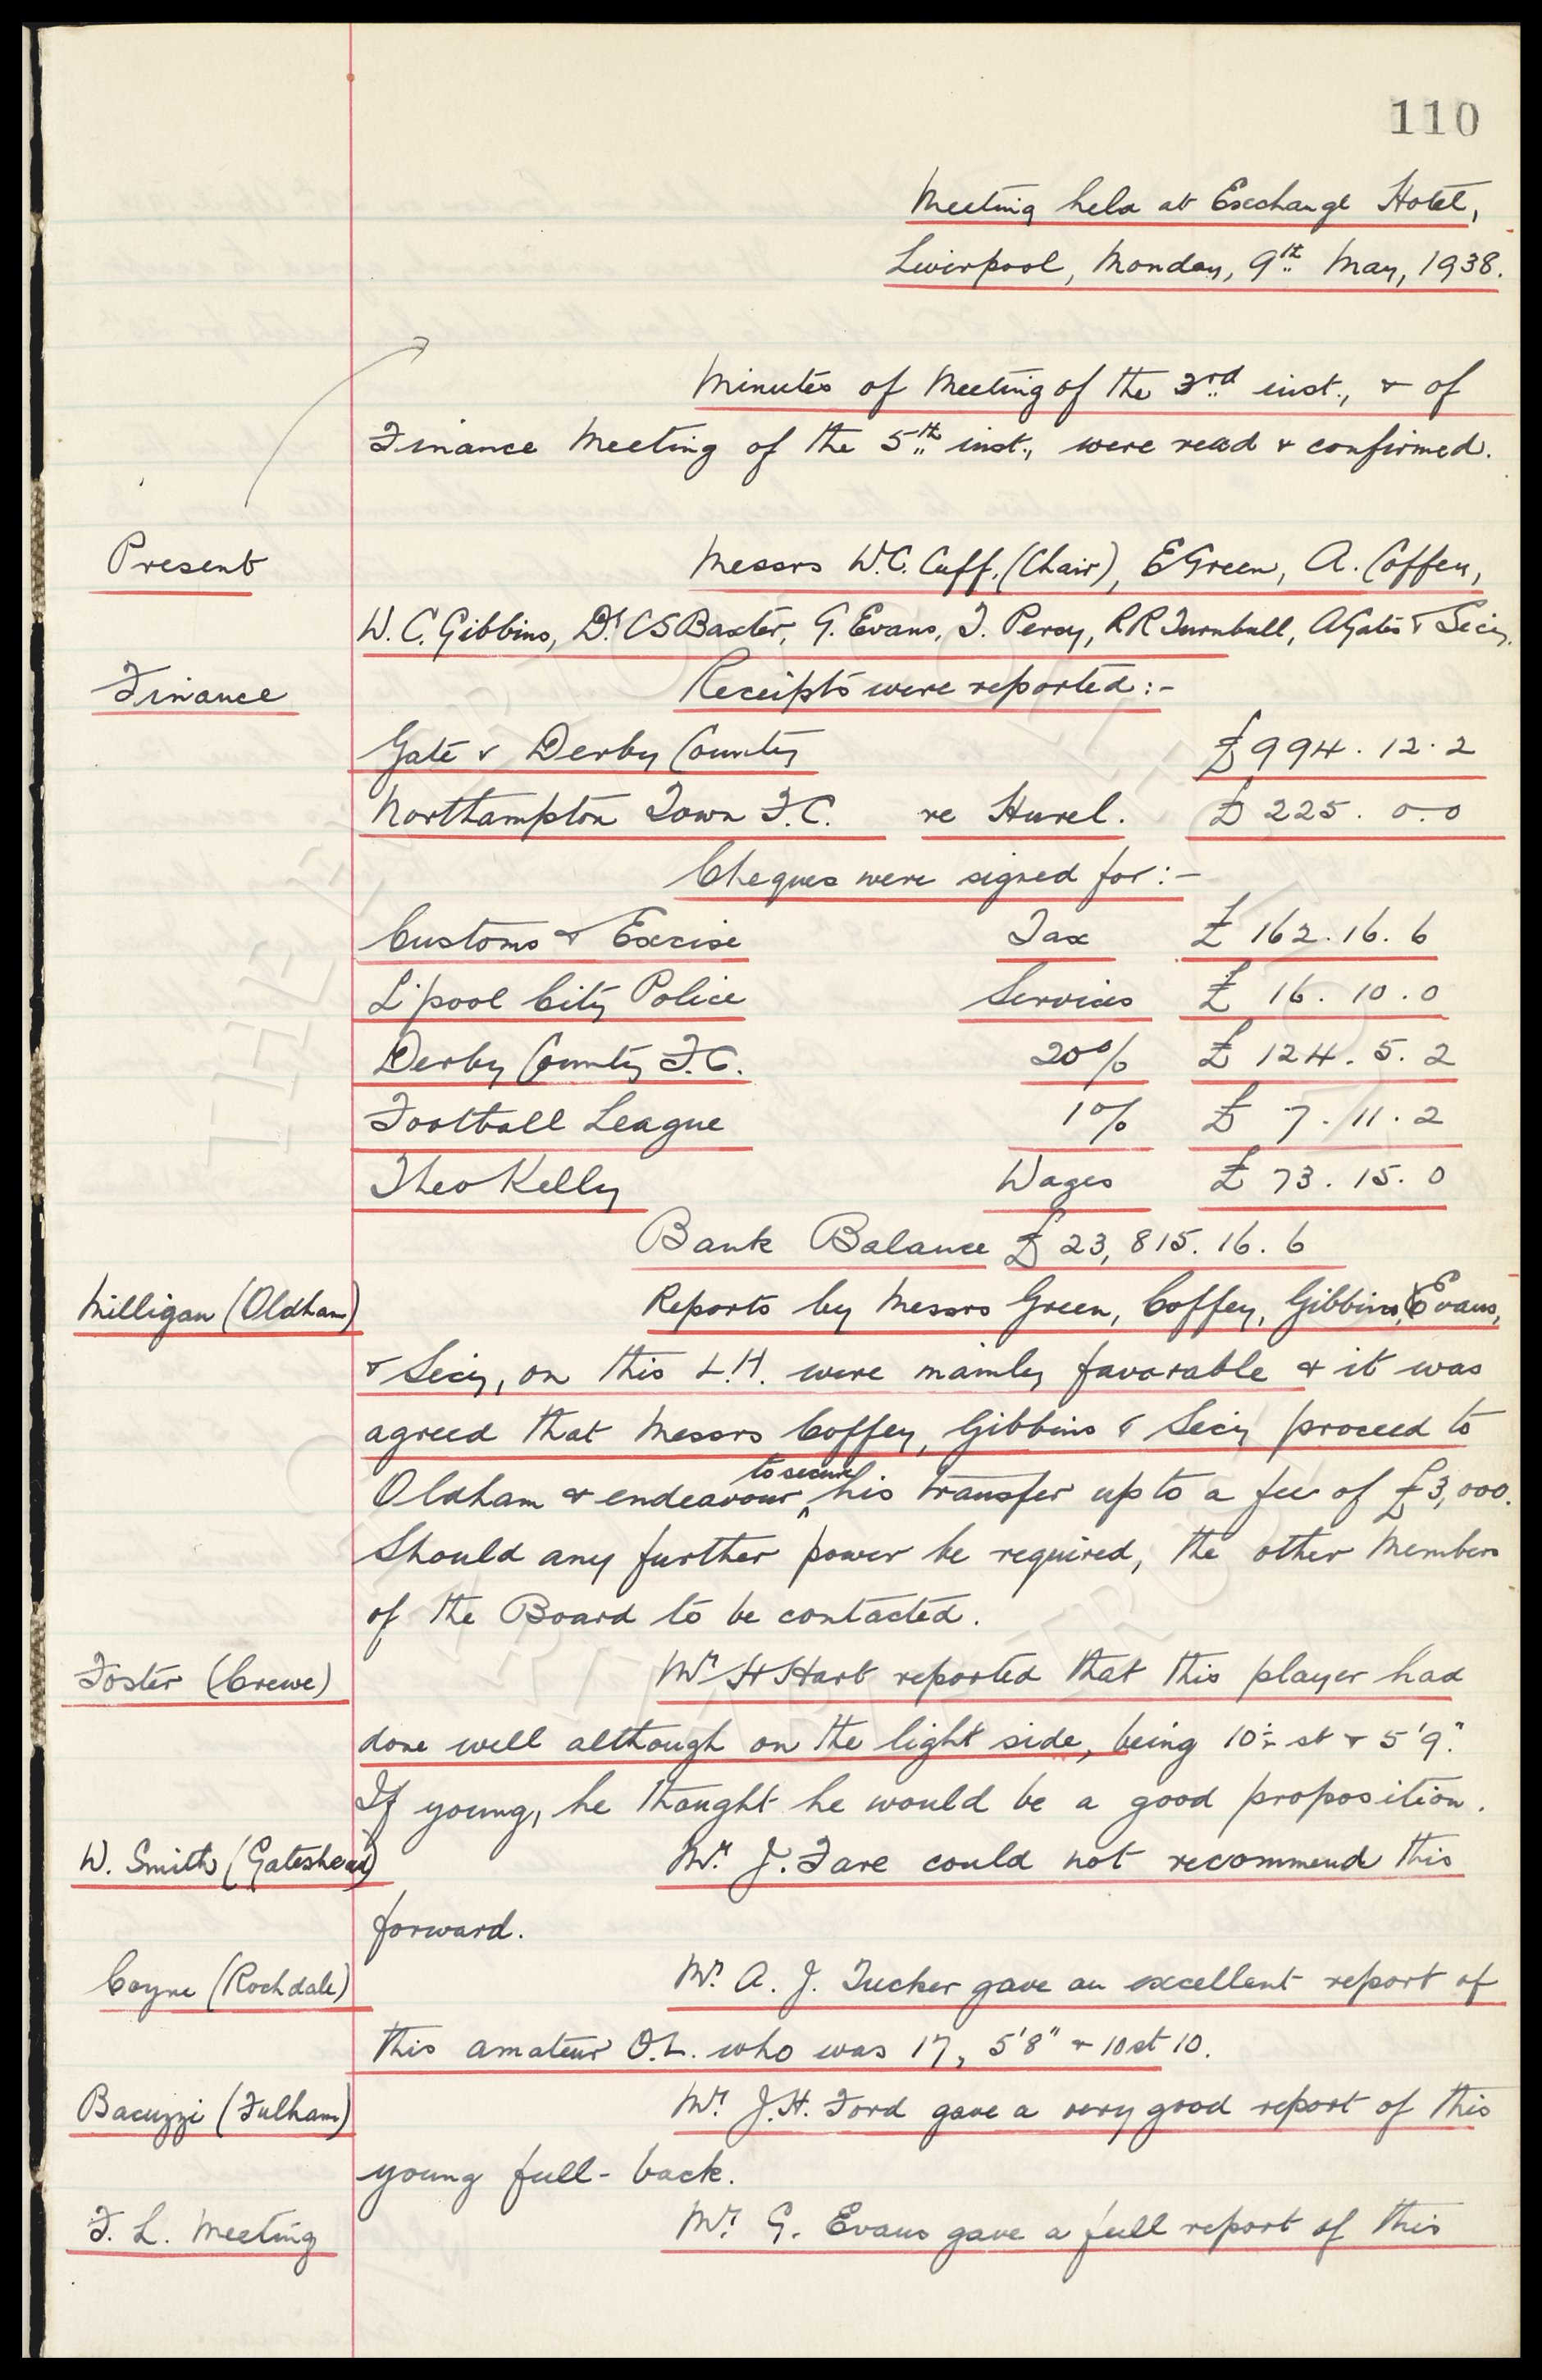 110
Meeting held at Exchange Hotel,
Liverpool, Monday, 9th May, 1938.
Minutes of Meeting of the 3rd inst., & of
Finance Meeting of the 5th inst., were read & confirmed.
Present Messrs W.C. Cuff. (Chair), E Green, A. Coffey,
W. C. Gibbins, Dr. C S Baxter, G. Evans, T. Percy, R R Turnbull, A Gates & Secy.
Finance Receipts were reported:-
Gate v Derby County £994. 12. 2
Northampton Town F.C. re Hurel. £ 225. 0. 0
Cheques were signed for:-
Customs & Excise Tax £ 162. 16. 6
L'pool City Police Services £ 16. 10. 0
Derby County F.C. 20% £ 124. 5. 2
Football League 1% £ 7. 11. 2
Theo Kelly Wages £ 73. 15. 0
Bank Balance £ 23,815. 16. 6
Milligan (Oldham) Reports by Messrs Green, Coffey, Gibbins, Evans,
& Secy, on this L.H. were mainly favorable & it was
agreed that Messrs Coffey, Gibbins & Secy proceed to
Oldham & endeavour to secure his transfer up to a fee of £3,000.
Should any further power be required, the other Members
of the Board to be contacted.
Foster (Crewe) Mr H Hart reported that this player had
done well although on the light side, being 10 st & 5'9".
If young, he thought he would be a good proposition.
W. Smith (Gateshead) Mr. J. Fare could not recommend this
forward.
Coyne (Rochdale) Mr. A. J. Tucker gave an excellent report of
this amateur O.L. who was 17, 5'8" & 10 st 10.
Bacuzzi (Fulham) Mr. J.H. Ford gave a very good report of this
young full-back.
F. L. Meeting Mr. G. Evans gave a full report of this